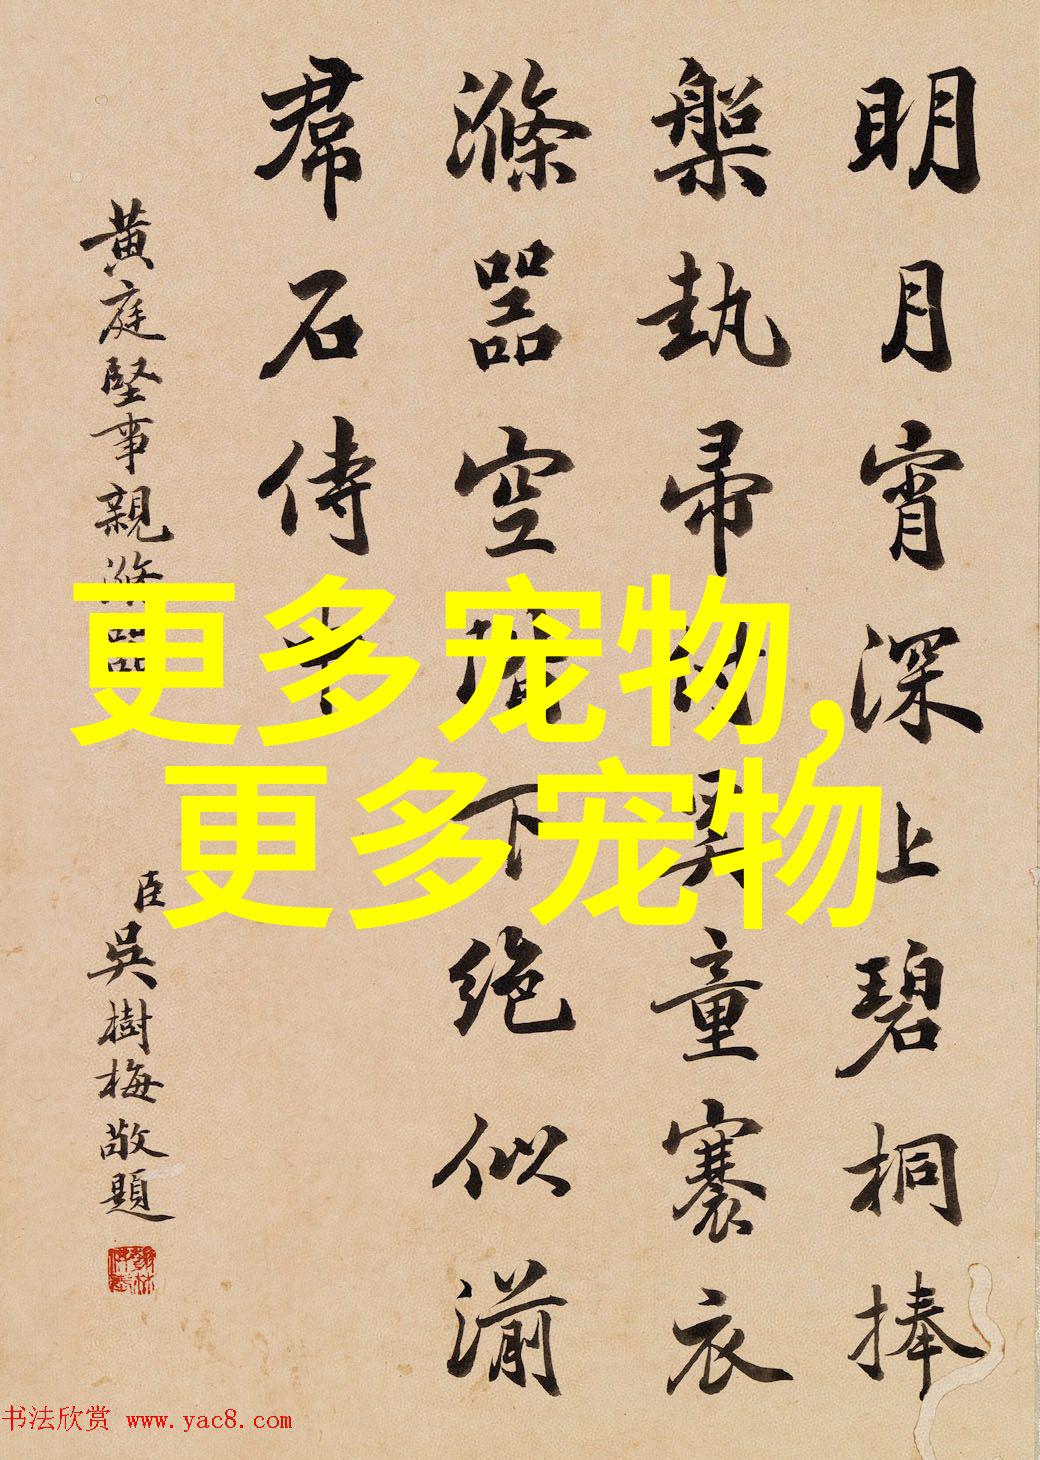 明月宵深上碧桐捧
槃執帚付奚童褰衣
滌器空階下絶似湔
帬石侍中
黄庭堅事親滌器
臣吳樹梅敬題
更多宠物,
更多宠物
书法欣赏 www.yac8.com